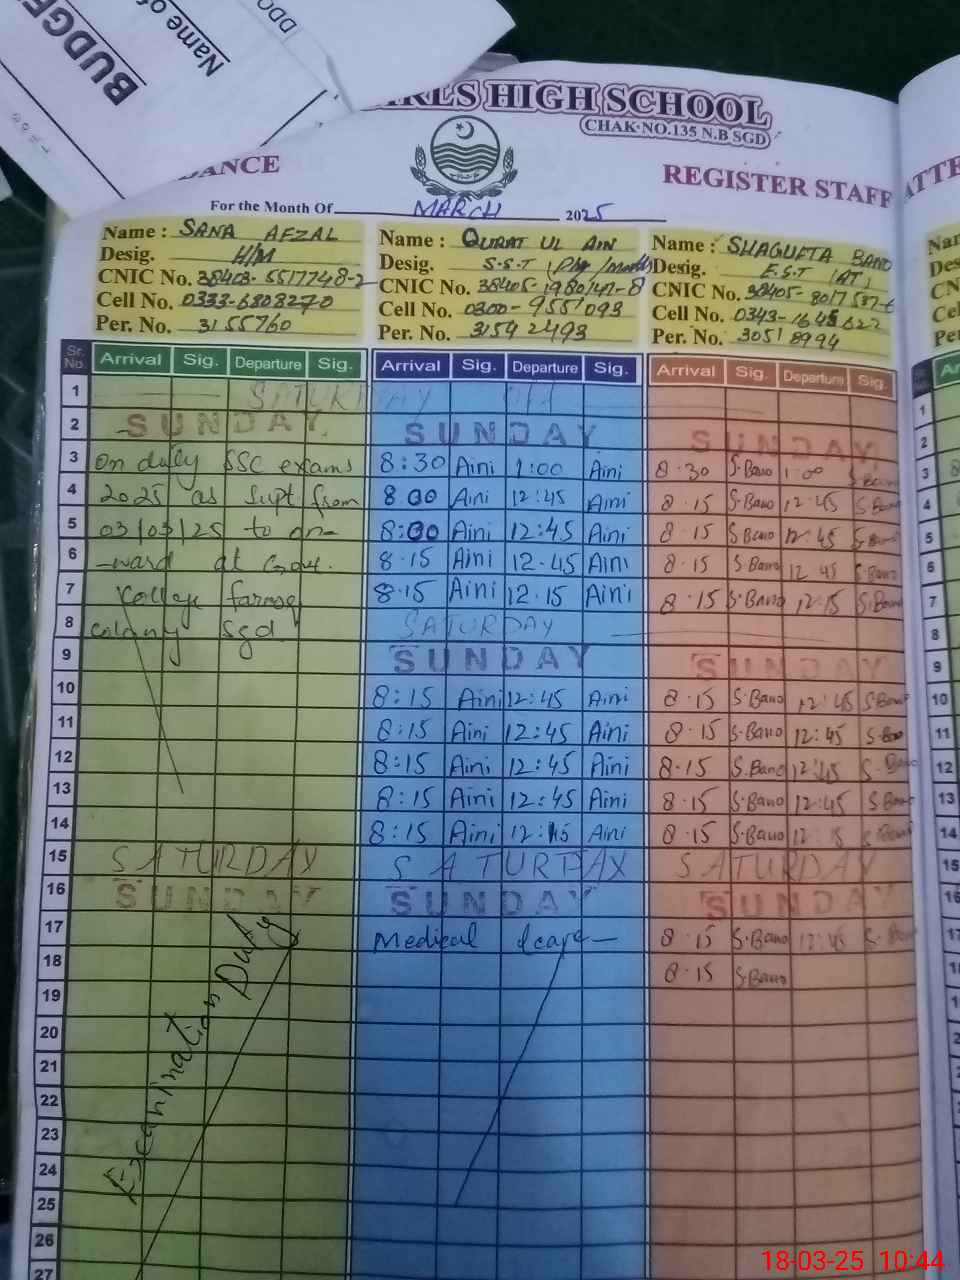 BUDGE
Name of
DDO
GIRLS HIGH SCHOOL
CHAK NO.135 N.B SGD
DANCE
REGISTER STAFF
ATTE
For the Month Of MARCH 2025
Name : SANA AFZAL
Desig. H/M
CNIC No. 38403-5517748-2
Cell No. 0333-6808270
Per. No. 3155760
Name : QURAT UL AIN
Desig. S.S.T (Phy/math)
CNIC No.
Cell No. 0300-9551093
Per. No. 31542493
Name : SHAGUFTA BANO
Desig. E.S.T (AT)
CNIC No. 38405-8017587-6
Cell No.
Per. No. 30518994
Sr. No. Arrival Sig. Departure Sig. Arrival Sig. Departure Sig. Arrival Sig. Departure Sig.
1 SATURDAY OFF
2 SUNDAY SUNDAY SUNDAY
3 On duty SSC exams 8:30 Aini 1:00 Aini 8.30 S.Bano 1.00 S.Bano
4 2025 as Supt from 8.00 Aini 12:45 Aini 8.15 S.Bano 12.45 S.Bano
5 03/03/25 to on- 8:00 Aini 12:45 Aini 8.15 S.Bano 12.45 S.Bano
6 -ward at Govt. 8.15 Aini 12.45 Aini 8.15 S.Bano 12.45 S.Bano
7 College farooq 8.15 Aini 12.15 Aini 8.15 S.Bano 12.15 S.Bano
8 colony Sgd SATURDAY
9 SUNDAY SUNDAY
10 8:15 Aini 12:45 Aini 8.15 S.Bano 12:45 S.Bano
11 8:15 Aini 12:45 Aini 8.15 S.Bano 12:45 S.Bano
12 8:15 Aini 12:45 Aini 8.15 S.Bano 12:45 S.Bano
13 8:15 Aini 12:45 Aini 8.15 S.Bano 12:45 S.Bano
14 8:15 Aini 12:15 Aini 8.15 S.Bano 12 15 S.Bano
15 SATURDAY SATURDAY SATURDAY
16 SUNDAY SUNDAY SUNDAY
17 Medical leave 8.15 S.Bano 12:45 S.Bano
18 8.15 S.Bano
19
20
21
22
23
24
25
26
27
Examination Duty
18-03-25 10:44